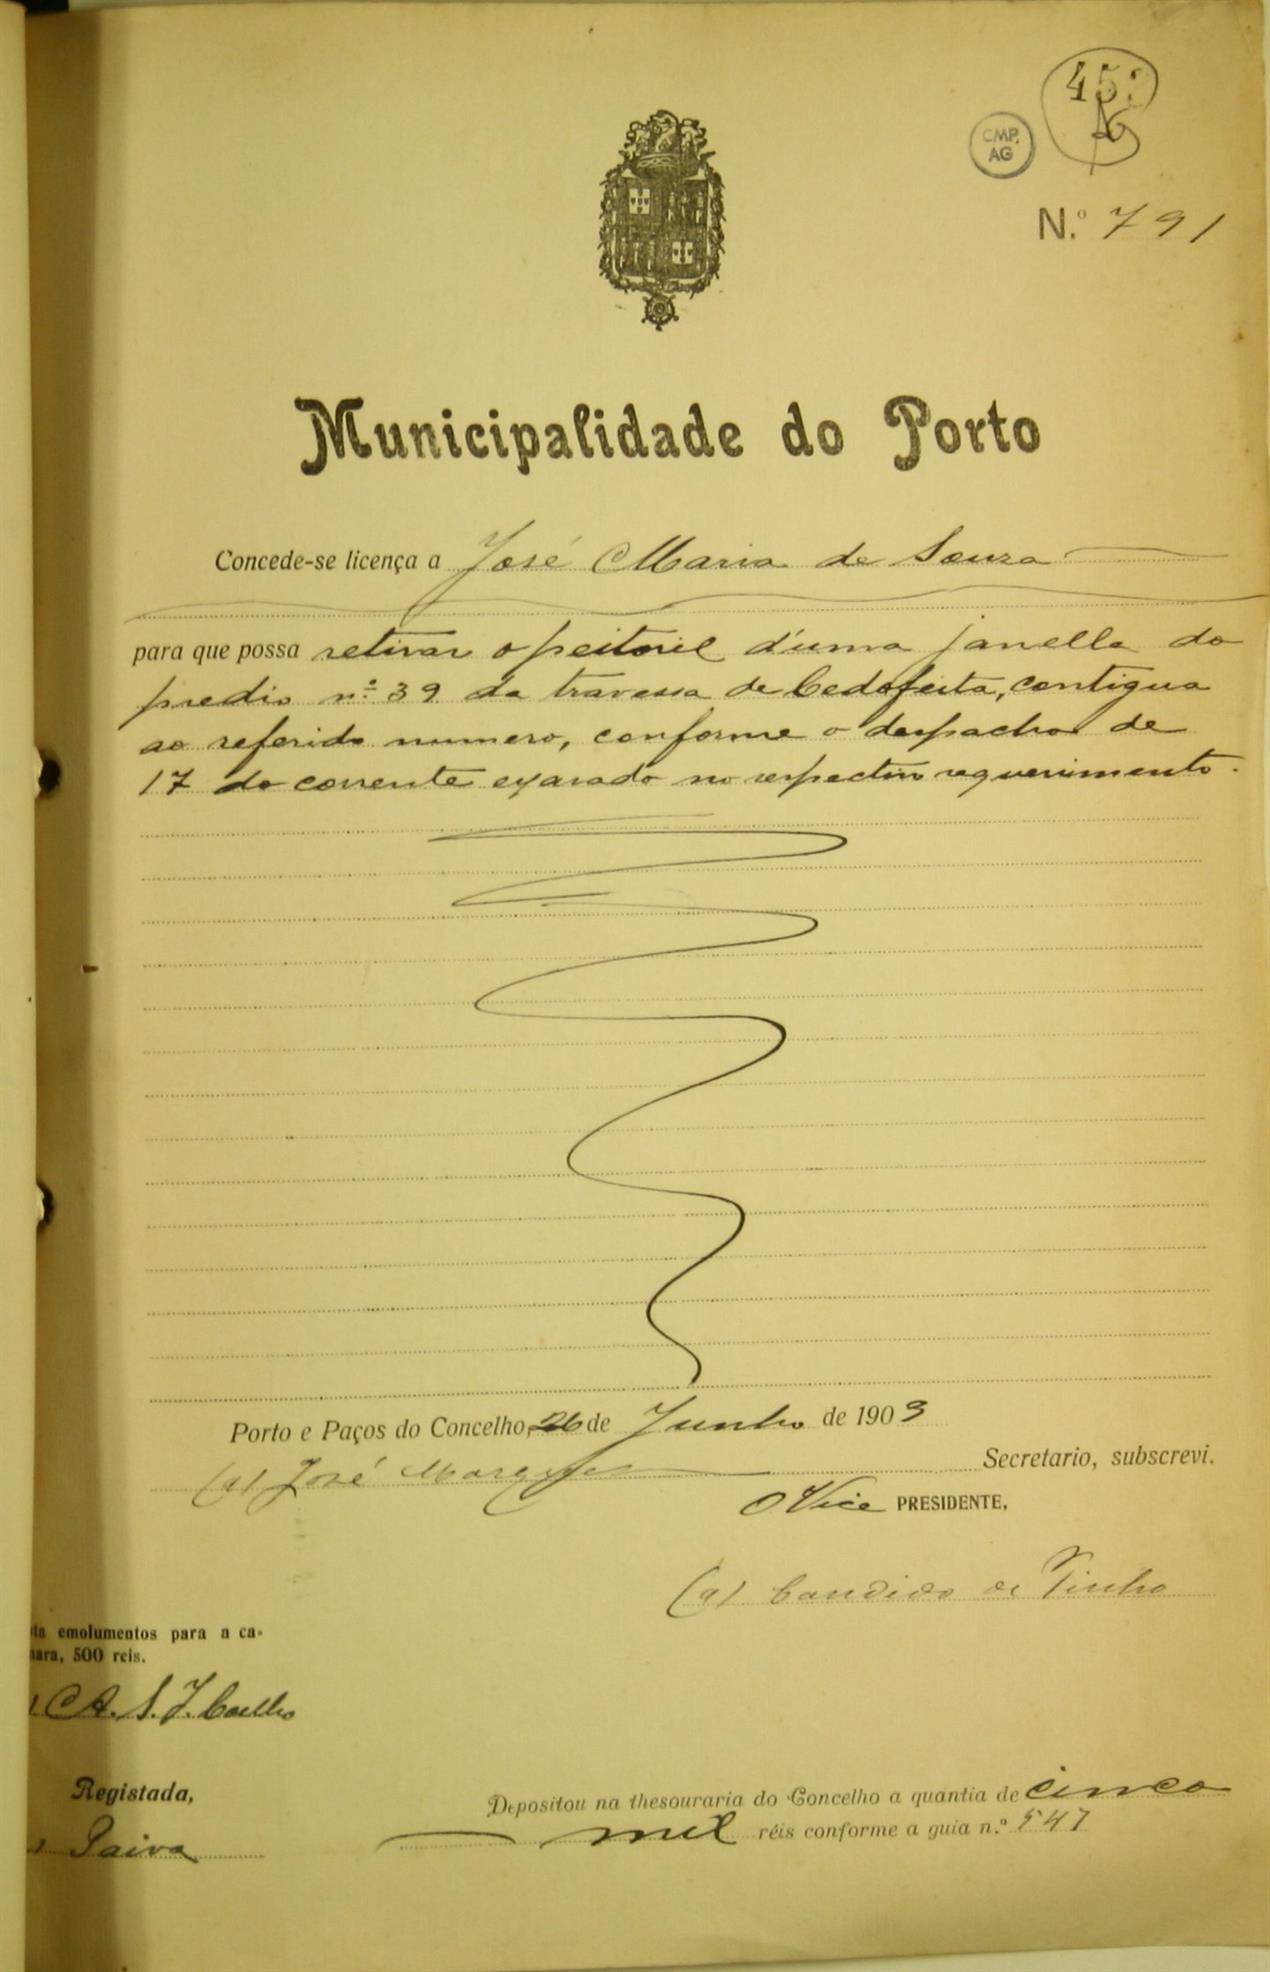 CMP.
AG
N.º 791
Municipalidade do Porto
Concede-se licença a José Maria de Souza
para que possa retirar o peitoril d'uma janella do
predio nº 39 da travessa de Cedofeita, contigua
ao referido numero, conforme o despacho de
17 do corrente exarado no respectivo requerimento.
Porto e Paços do Concelho, 26 de Junho de 1909
(a) José Marques Secretario, subscrevi.
O Vice PRESIDENTE,
(a) Candido de Pinho
emolumentos para a ca-
mara, 500 reis.
A. S. J. Coelho
Registada,
Paiva
Depositou na thesouraria do Concelho a quantia de cinco
mil réis conforme a guia n.º 547